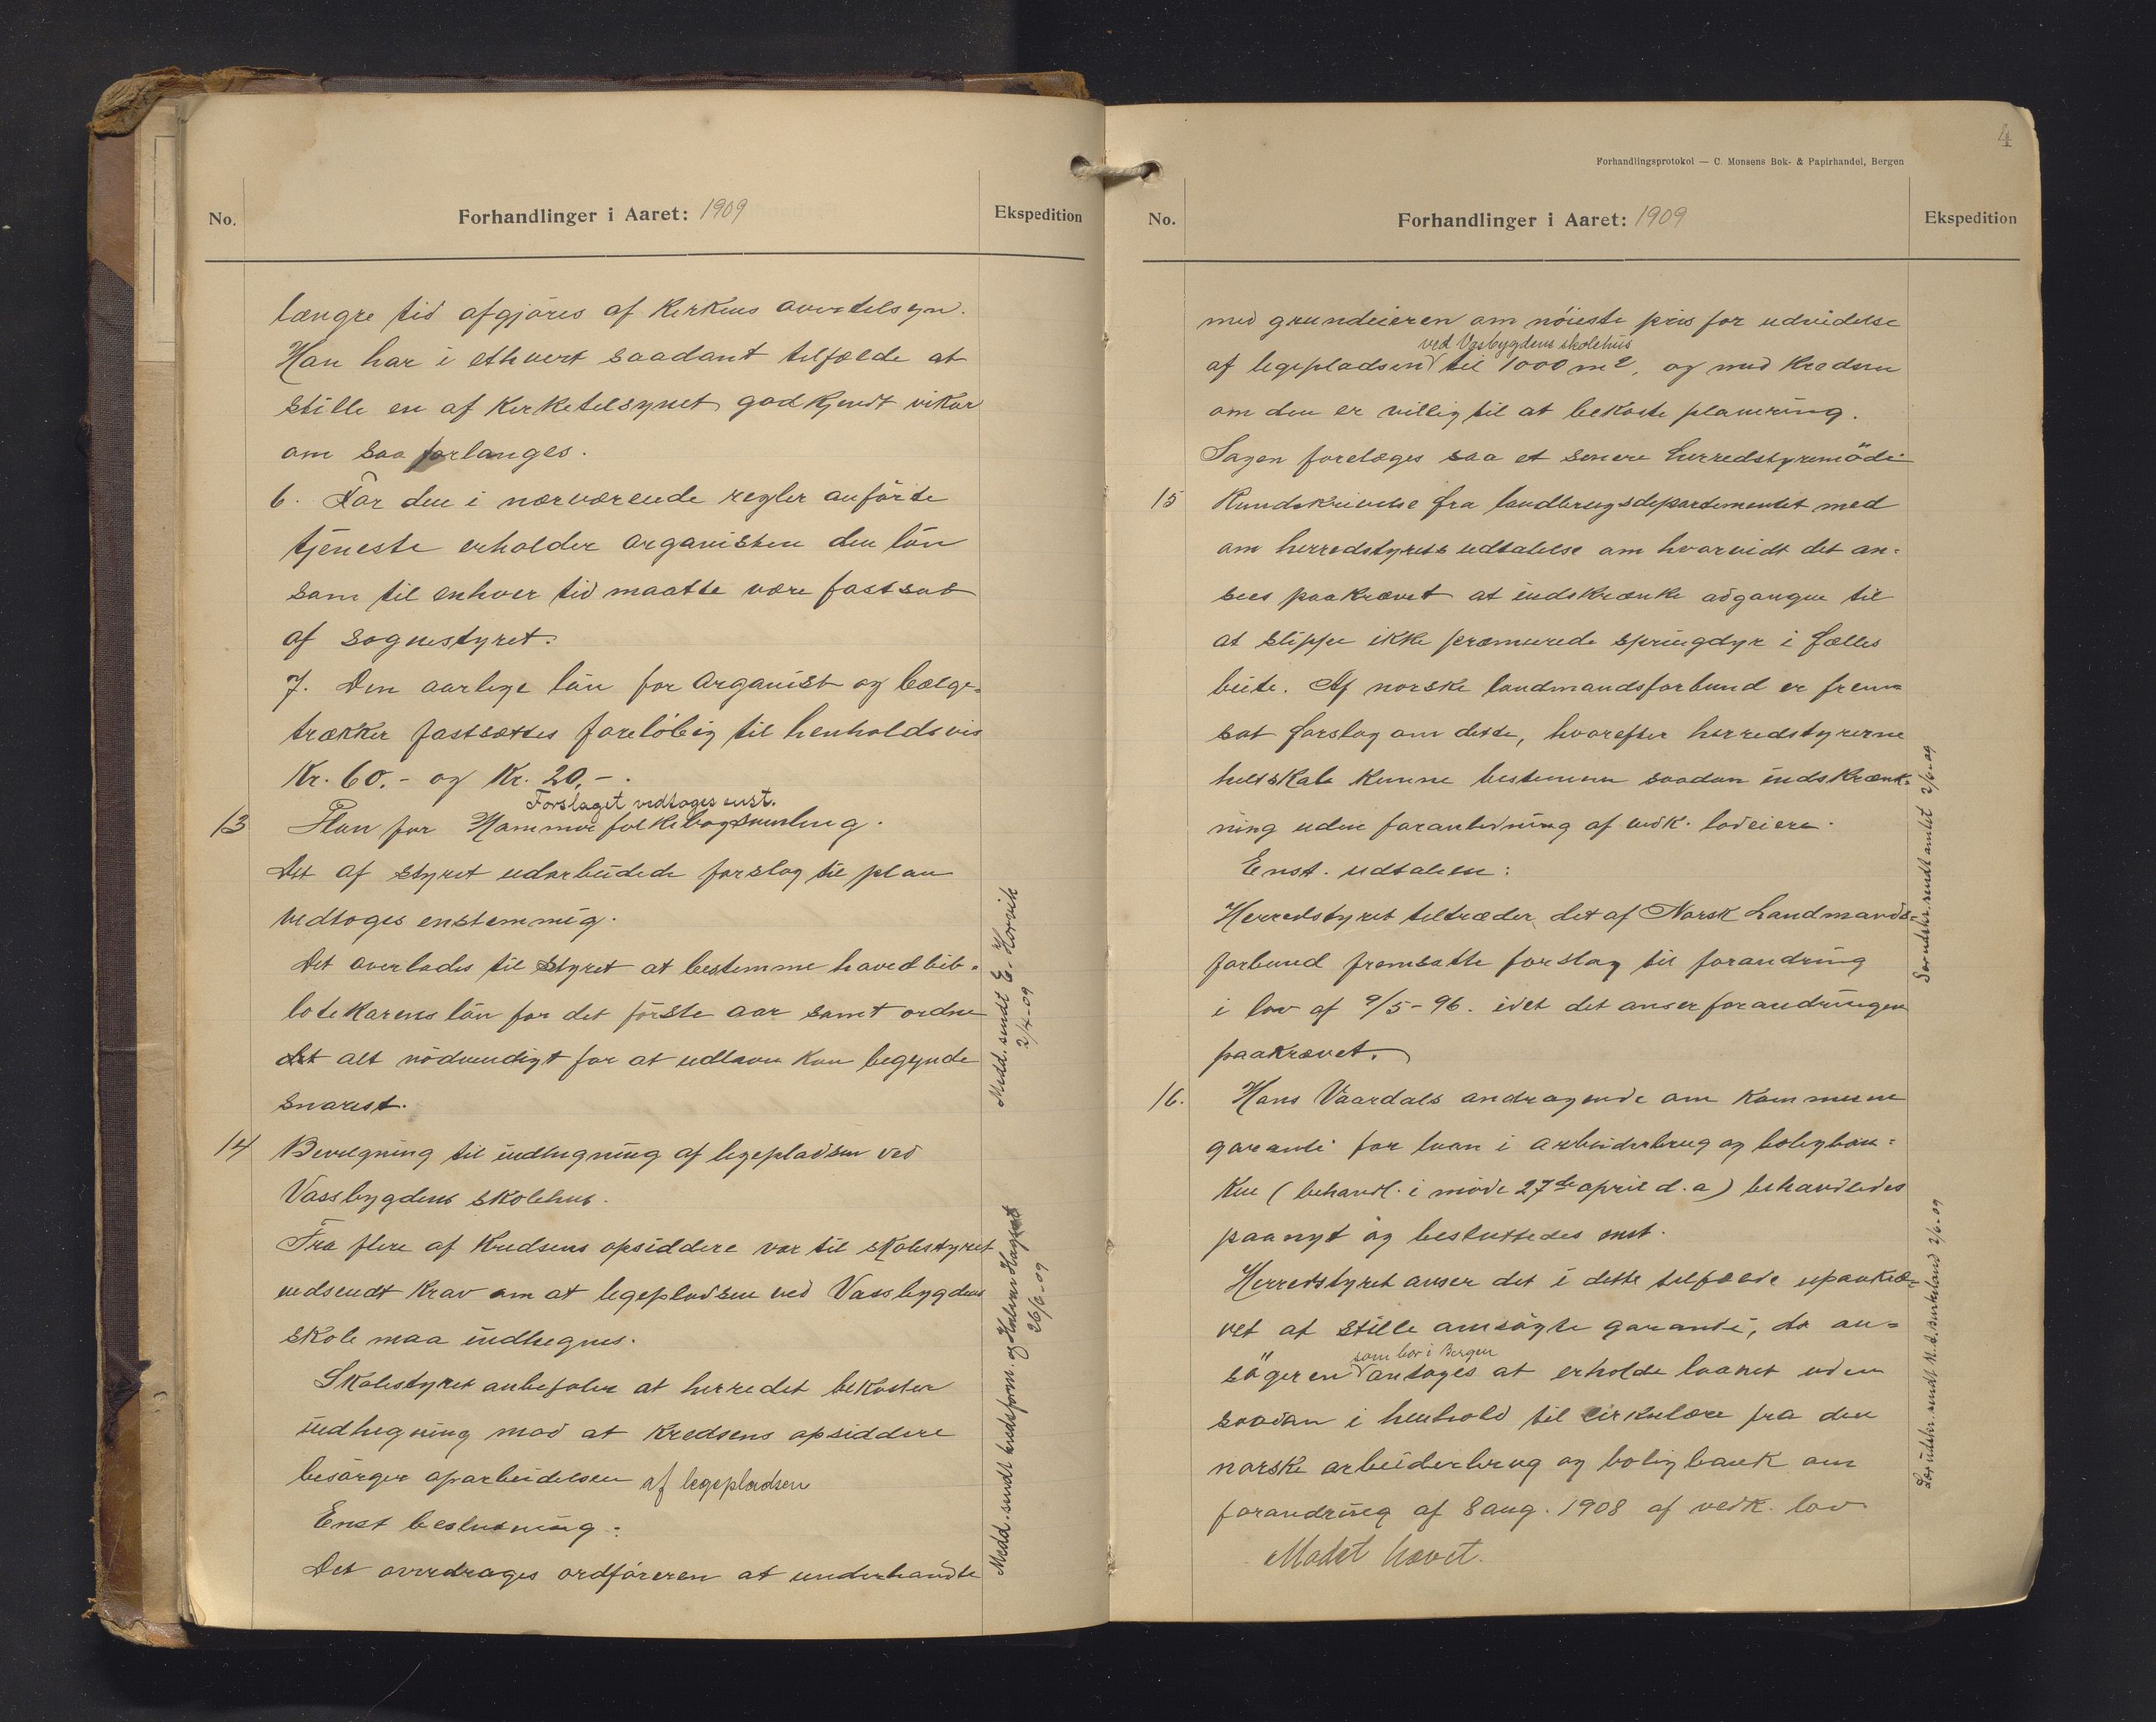 No.
Forhandlinger i Aaret: 1909
Ekspedition
længre tid afgjøres af Kirkens overtilsyn.
Han har i ethvert saadant tilfælde at
stille en af Kirketilsynet godkjendt vikar
om saa forlanges.
6. For den i nærværende regler anförte
tjeneste erholder organisten den lön
som til enhver tid maatte være fastsat
af sognestyret.
7. Den aarlige lön for organist og bælge-
trækker fastsættes foreløbig til henholdsvis
Kr. 60.- og Kr. 20.-.
Forslaget vedtoges enst.
13 Plan for Hammer folkebogsamling.
Det af styret udarbeidede forslag til plan
vedtoges enstemmig.
Det overlades til styret at bestemme hovedbib-
lotekarens lön for det förste aar samt ordne
det alt nödvendigt for at udlaan kan begynde
snarest.
Medd. sendt E. Horvik
2/4-09
14 Bevilgning til indhegning af legepladsen ved
Vassbygdens skolehus.
Fra flere af Kredsens opsiddere var til skolestyret
indsendt krav om at legepladsen ved Vassbygdens
skole maa indhegnes.
Skolestyret anbefaler at herredet bekoster
indhegning mod at Kredsens opsiddere
besörger oparbeidelsen af legepladsen
Enst beslutning:
Det overdrages ordföreren at underhandle
Medd. sendt kredsform. og Halvor
26/6-09
4
Forhandlingsprotokol — C. Monsens Bok- & Papirhandel, Bergen
No.
Forhandlinger i Aaret: 1909
Ekspedition
med grundeieren om nöieste pris for udvidelse
ved Vasbygdens skolehus
af legepladsen til 1000 m2, og med Kredsen
om den er villig til at bekoste planering.
Sagen forelæges saa et senere herredstyremöde
15 Rundskrivelse fra landbrugsdepartementet med
om herredstyrets udtalelse om hvorvidt det an-
sees paakrævet at indskrænke adgangen til
at slippe ikke præmierede springdyr i fælles
beite. Af norske landmandsforbund er frem-
sat forslag om dette, hvorefter herredstyrerne
selskab kunne bestemme saadan indskrænk-
ning uden foranledning af vedk. lodeiere.
Enst. udtalelse:
Herredstyret tiltræder det af Norsk Landmands-
forbund fremsatte forslag til forandring
i lov af 9/5-96. idet det anser forandringen
paakrævet.
Særudskr. sendt amtet 2/6-09
16. Hans Vaardals andragende om Kommune
garanti for laan i arbeiderbrug og boligban-
ken (behandl. i möde 27de april d. a) behandledes
paanyt og besluttedes enst.
Herredstyret anser det i dette tilfælde upaakræ-
vet at stille ansögte garanti, da an-
som bor i Bergen
sögeren antages at erholde laanet uden
saadan i henhold til cirkulære fra den
norske arbeiderbrug og boligbank om
forandring af 8 aug. 1908 af vedk. lov
Mødet hævet.
Særudskr. sendt 2/6-09